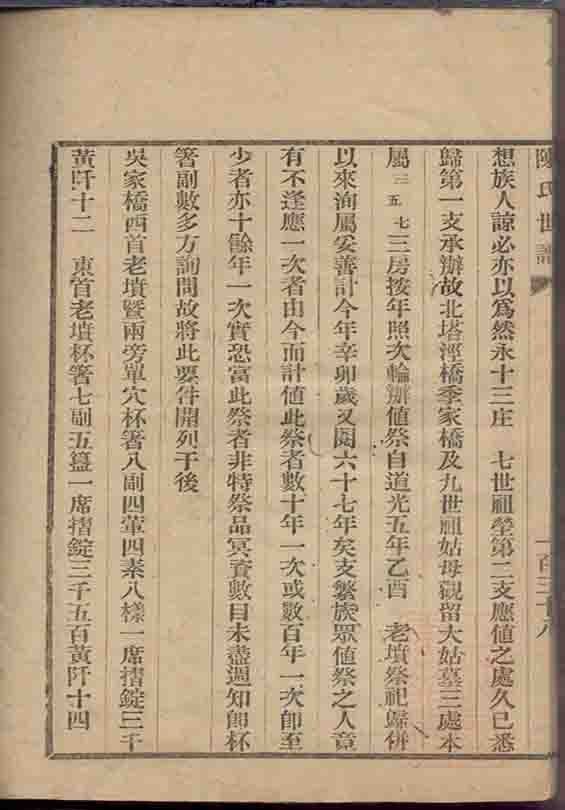 陳氏世譜
一百三十八
想族人諒必亦以爲然永十三庄　七世祖塋第二支應値之處久已悉
歸第一支承辦故北塔涇橋季家橋及九世祖姑母觀留大姑墓三處本
屬三五七三房按年照次輪辦値祭自道光五年乙酉　老墳祭祀歸併
以來洵屬妥善計今年辛卯歲又閱六十七年矣支繁族眾値祭之人竟
有不逢應一次者由今而計値此祭者數十年一次或數百年一次卽至
少者亦十餘年一次實恐當此祭者非特祭品冥資數目未盡週知卽杯
箸副數多方詢問故將此要件開列于後
吳家橋西首老墳暨兩旁單穴杯箸八副四葷四素八樣一席摺錠三千
黃阡十二　東首老墳杯箸七副五簋一席摺錠三千五百黃阡十四